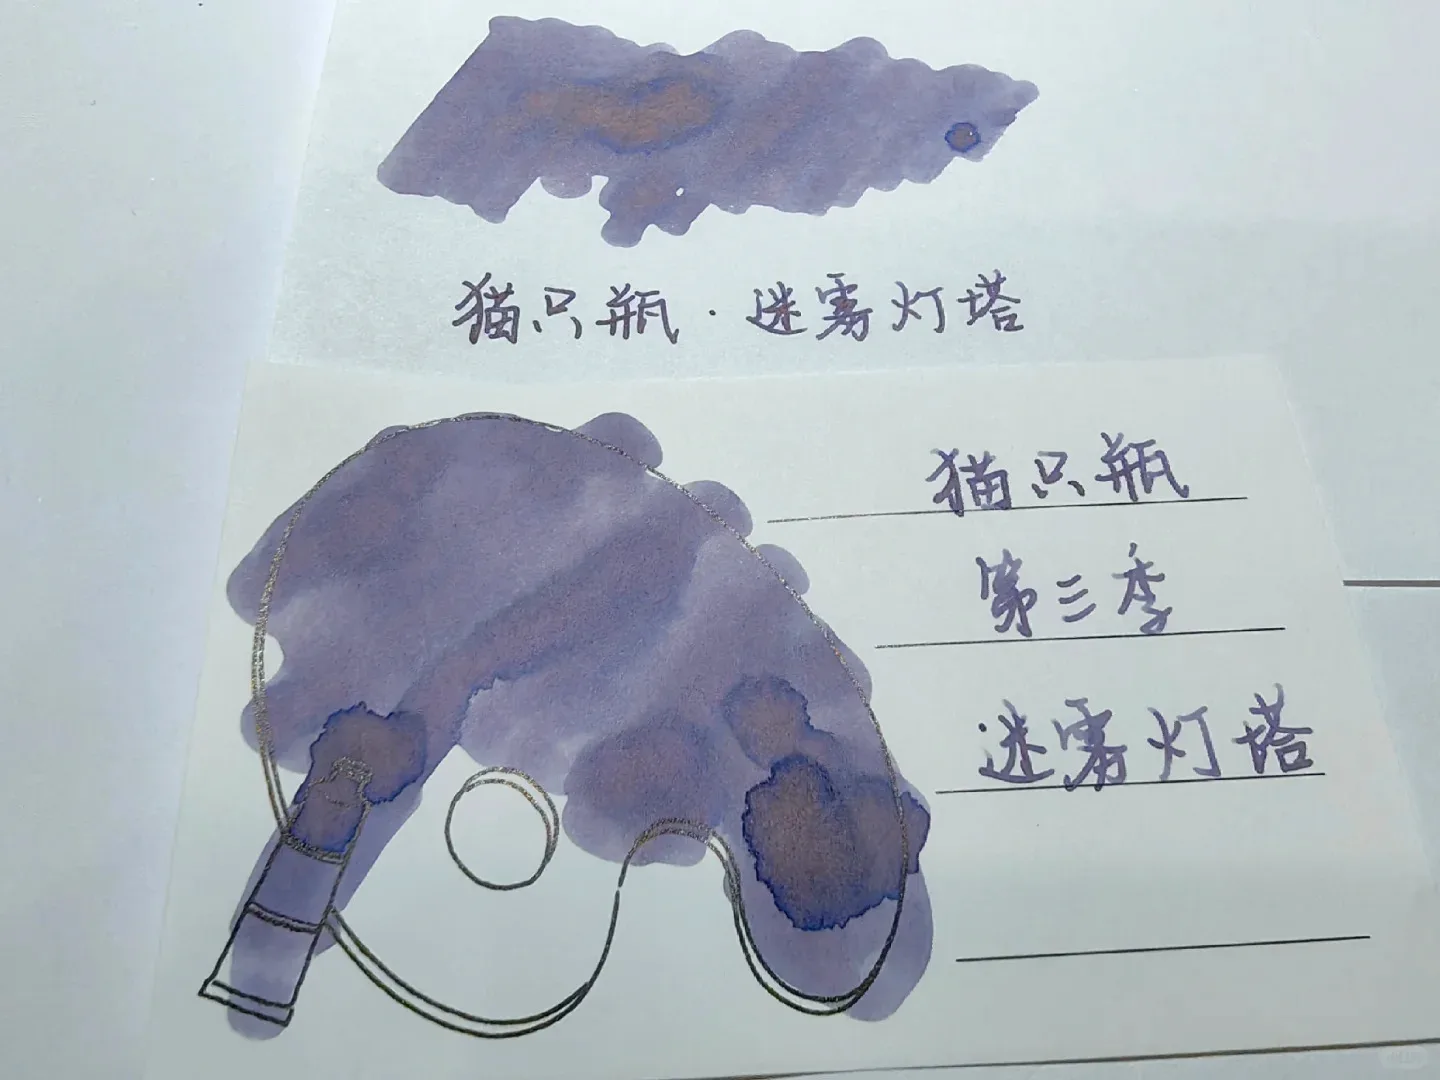 猫只瓶·迷雾灯塔
猫只瓶
第三季
迷雾灯塔